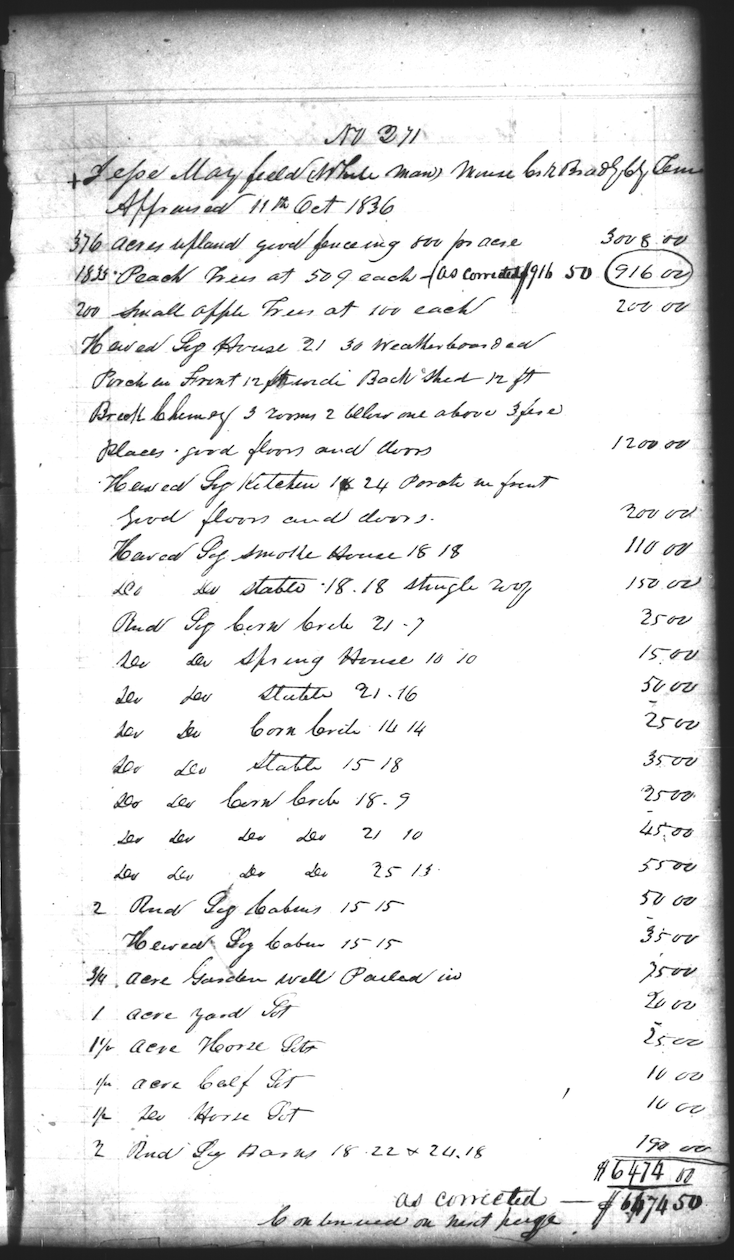 No 271
+ Jesse Mayfield (White man) Mouse Crk Brad'y Cty Tenn
Appraised 11th Oct 1836
376 acres upland good fencing 800 pr acre 3008.00
1833 Peach Trees at 50 ¢ each (as corrected $916 50 916 00
200 Small apple Trees at 100 each 200 00
Hewed Log House 21 30 Weatherboarded
Porch in Front 12 ft wide Back Shed 12 ft
Brick Chimney 3 rooms 2 below one above 3 fire
places. good floors and doors 1200 00
Hewed Log Kitchen 18 24 Porch in front
Good floors and doors. 200 00
Hewed Log Smoke House 18 18 110 00
Do Do Stable 18.18 shingle roof 150 00
Rnd Log Corn Crib 21.7 25 00
Do Do Spring House 10 10 15.00
Do Do Stable 21.16 50 00
Do Do Corn Crib 14 14 25 00
Do Do Stable 15 18 35 00
Do Do Corn Crib 18.9 25 00
Do Do Do Do 21 10 45.00
Do Do Do Do 25 13 55 00
2 Rnd Log Cabins 15 15 50 00
Hewed Log Cabin 15 15 35 00
3/4 acre Garden well Pailed in 75 00
1 acre yard Lot 20 00
1 1/2 acre Horse Lots 25.00
1/2 acre Calf Lot 10 00
1/2 Do Horse Lot 10 00
2 Rnd Log Barns 18.22 & 24.18 190 00
$6474 00
as corrected — $ 50
Continued on next page